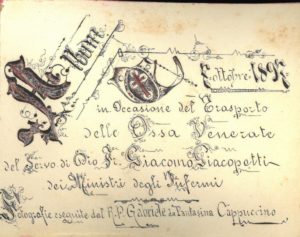 Album
Ottobre 1895
in Occasione del Trasporto
delle Ossa Venerate
del Servo di Dio Fr. Giacomo Giacopetti
dei Ministri degli Infermi
Fotografie eseguite dal P. P. Gabriele da Cappuccino